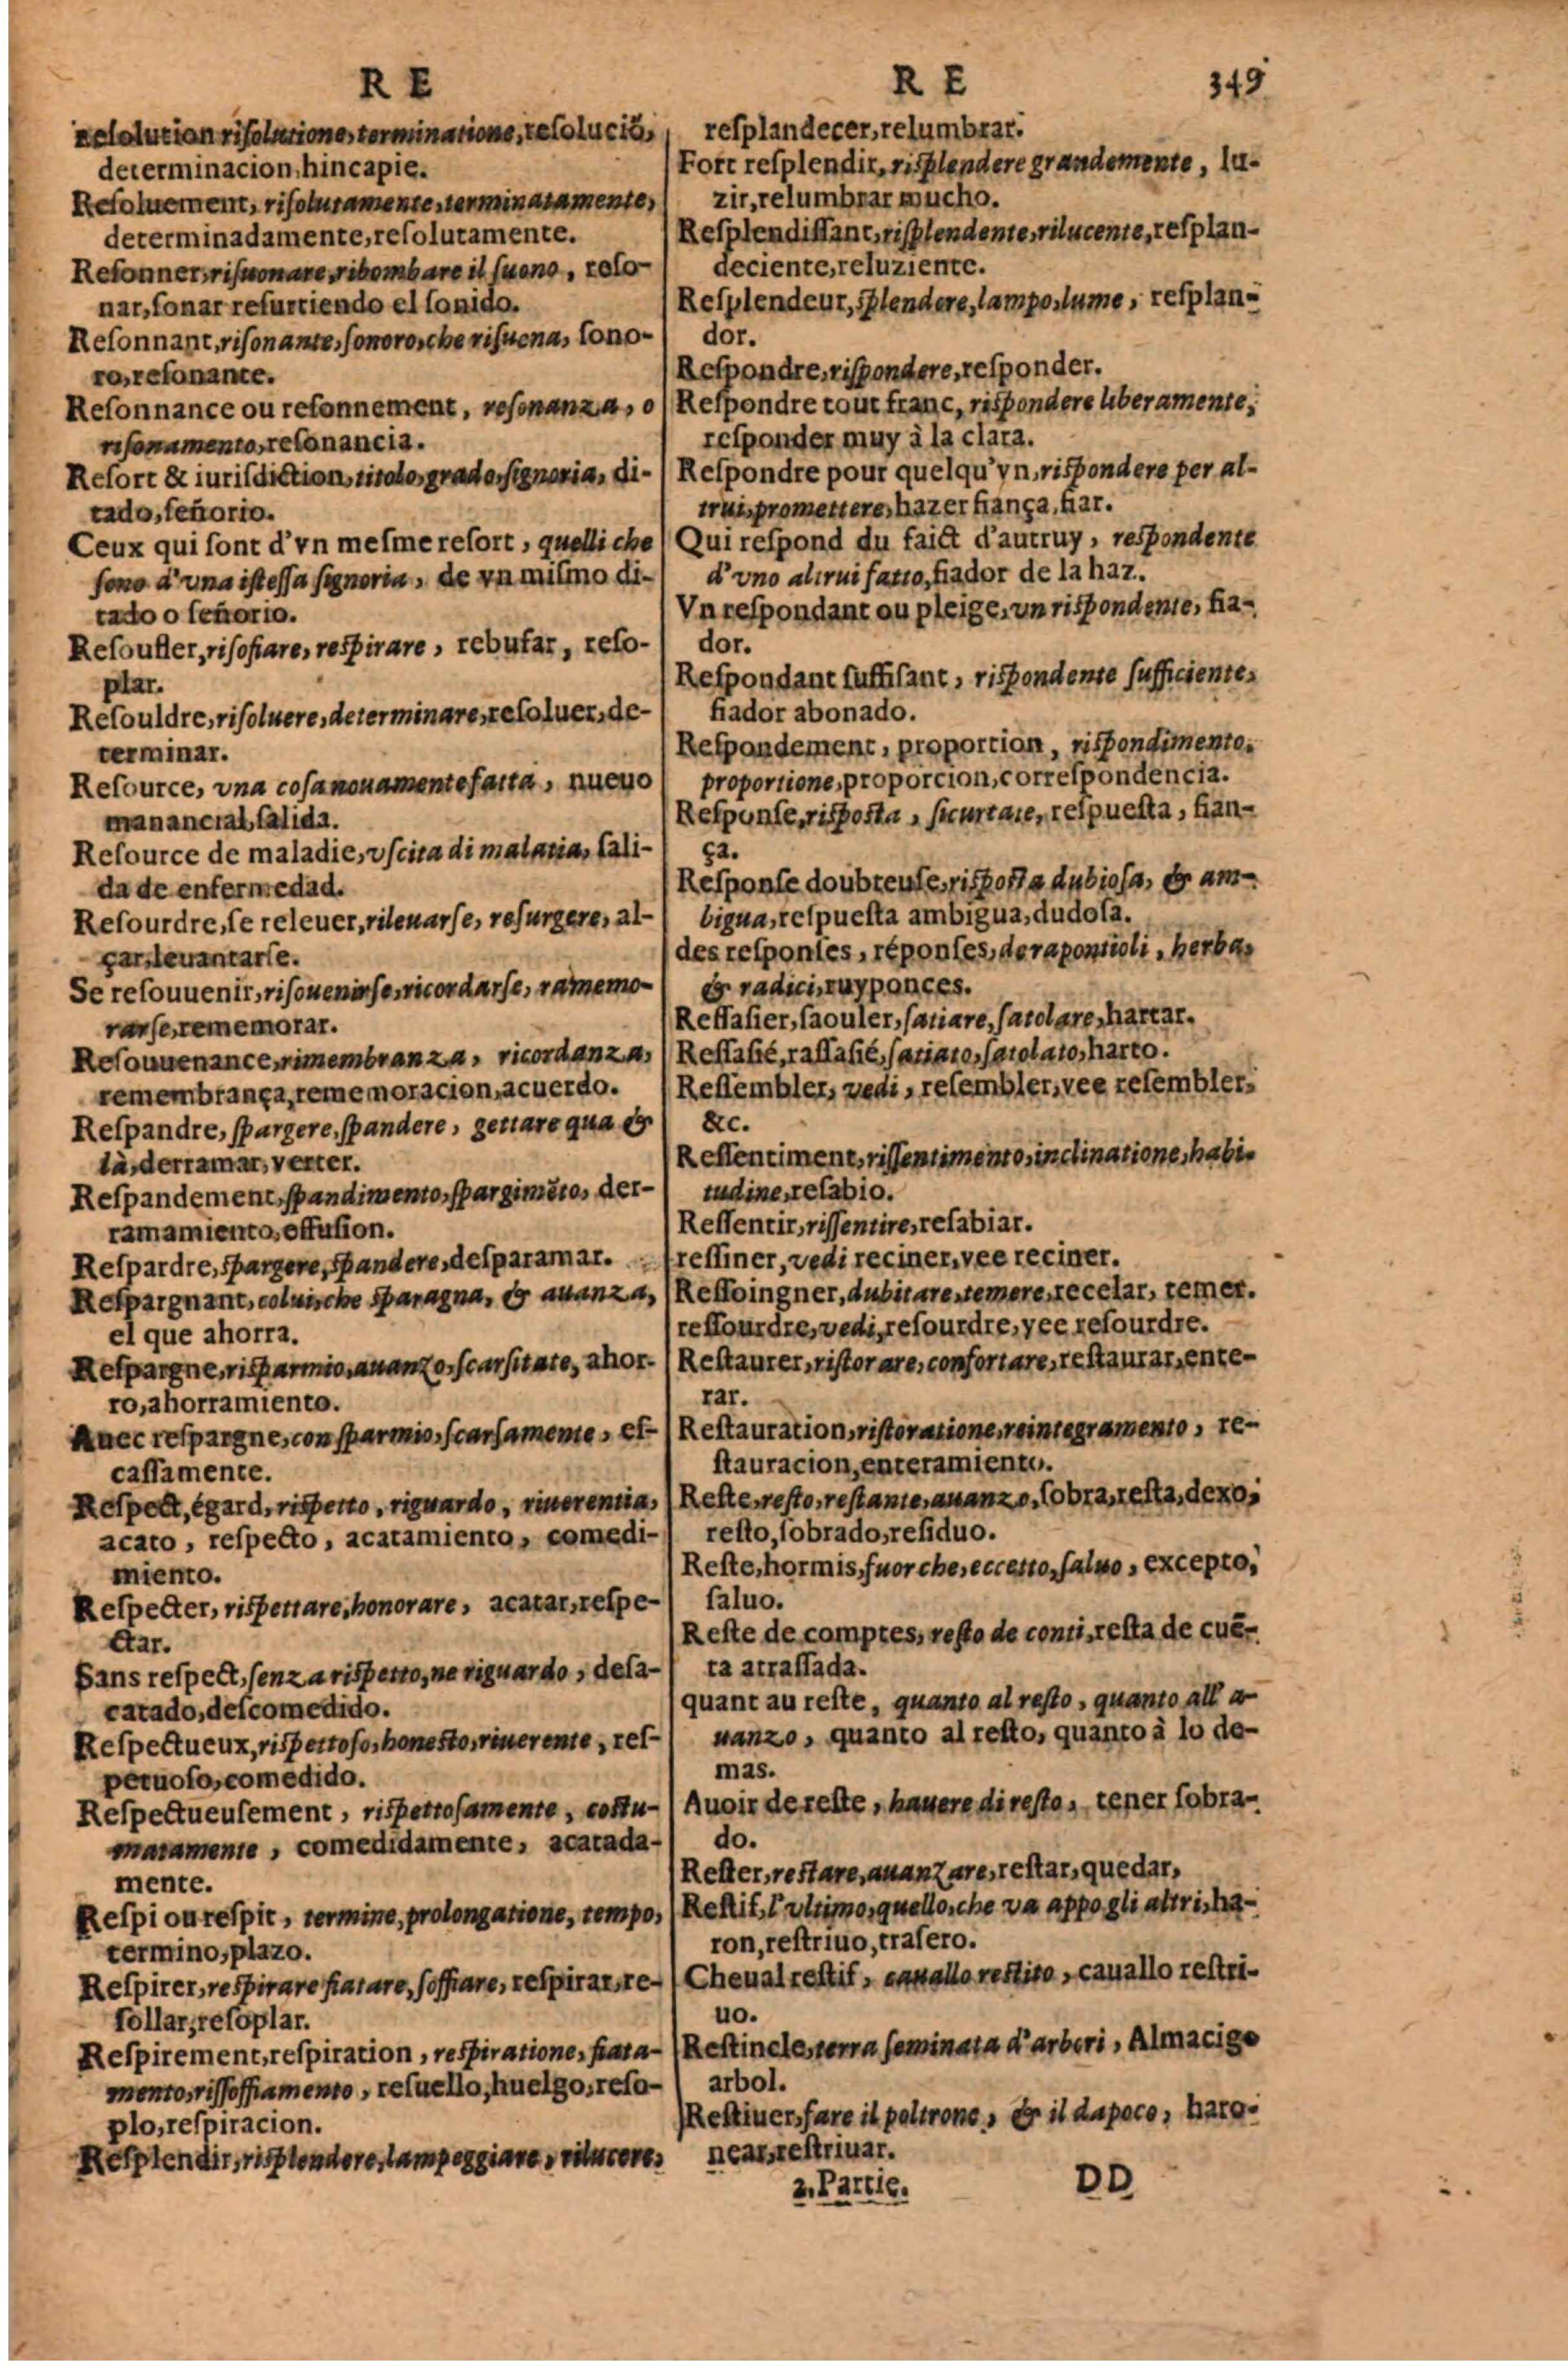 R E
reſolution riſolutione, terminatione, reſoluciõ,
determinacion, hincapie.
Reſoluement, riſolutamente, terminatamente,
determinadamente, reſolutamente.
Reſonner, riſuonare, ribombare il ſuono, reſo-
nar, ſonar reſurtiendo el ſonido.
Reſonnant, riſonante, ſonoro, che riſuona, ſono-
ro, reſonante.
Reſonnance ou reſonnement, reſonanza, o
riſonamento, reſonancia.
Reſort & iuriſdiction, titolo, grado, ſignoria, di-
tado, ſeñorio.
Ceux qui ſont d'vn meſme reſort, quelli che
ſono d'vna iſteſſa ſignoria, de vn miſmo di-
tado o ſeñorio.
Reſoufler, riſofiare, reſpirare, rebufar, reſo-
plar.
Reſouldre, riſoluere, determinare, reſoluer, de-
terminar.
Reſource, vna coſa nouamente fatta, nueuo
manancial, ſalida.
Reſource de maladie, vſcita di malatia, ſali-
da de enfermedad.
Reſourdre, ſe releuer, rileuarſe, reſurgere, al-
çar, leuantarſe.
Se reſouuenir, riſouenirſe, ricordarſe, ramemo-
rarſe, rememorar.
Reſouuenance, rimembranza, ricordanza,
remembrança, rememoracion, acuerdo.
Reſpandre, ſpargere, ſpandere, gettare qua &
là, derramar, verter.
Reſpandement, ſpandimento, ſpargimẽto, der-
ramamiento, effuſion.
Reſpardre, ſpargere, ſpandere, deſparamar.
Reſpargnant, colui, che ſparagna, & auanza,
el que ahorra.
Reſpargne, riſparmio, auanzo, ſcarſitate, ahor-
ro, ahorramiento.
Auec reſpargne, con ſparmio, ſcarſamente, eſ-
caſſamente.
Reſpect, égard, riſpetto, riguardo, riuerentia,
acato, reſpecto, acatamiento, comedi-
miento.
Reſpecter, riſpettare, honorare, acatar, reſpe-
ctar.
Sans reſpect, ſenza riſpetto, ne riguardo, deſa-
catado, deſcomedido.
Reſpectueux, riſpettoſo, honeſto, riuerente, reſ-
petuoſo, comedido.
Reſpectueuſement, riſpettoſamente, coſtu-
matamente, comedidamente, acatada-
mente.
Reſpi ou reſpit, termine, prolongatione, tempo,
termino, plazo.
Reſpirer, reſpirare fiatare, ſoffiare, reſpirar, re-
ſollar, reſoplar.
Reſpirement, reſpiration, reſpiratione, fiata-
mento, riſſoffiamento, reſuello, huelgo, reſo-
plo, reſpiracion.
Reſplendir, riſplendere, lampeggiare, rilucere,
R E 349
reſplandecer, relumbrar.
Fort reſplendir, riſplendere grandemente, lu-
zir, relumbrar mucho.
Reſplendiſſant, riſplendente, rilucente, reſplan-
deciente, reluziente.
Reſplendeur, ſplendere, lampo, lume, reſplan-
dor.
Reſpondre, riſpondere, reſponder.
Reſpondre tout franc, riſpondere liberamente,
reſponder muy à la clara.
Reſpondre pour quelqu'vn, riſpondere per al-
trui, promettere, hazer fiança, fiar.
Qui reſpond du faict d'autruy, reſpondente
d'vno altrui fatto, fiador de la haz.
Vn reſpondant ou pleige, vn riſpondente, fia-
dor.
Reſpondant ſuffiſant, riſpondente ſufficiente,
fiador abonado.
Reſpondement, proportion, riſpondimento,
proportione, proporcion, correſpondencia.
Reſponſe, riſpoſta, ſicurtate, reſpueſta, fian-
ça.
Reſponſe doubteuſe, riſpoſta dubioſa, & am-
bigua, reſpueſta ambigua, dudoſa.
des reſponſes, réponſes, de rapontioli, herba,
& radici, ruyponces.
Reſſaſier, ſaouler, ſatiare, ſatolare, hartar.
Reſſaſié, raſſaſié, ſatiato, ſatolato, harto.
Reſſembler, vedi, reſembler, vee reſembler,
&c.
Reſſentiment, riſſentimento, inclinatione, habi-
tudine, reſabio.
Reſſentir, riſſentire, reſabiar.
reſſiner, vedi reciner, vee reciner.
Reſſoingner, dubitare, temere, recelar, temer.
reſſourdre, vedi, reſourdre, vee reſourdre.
Reſtaurer, riſtorare, confortare, reſtaurar, ente-
rar.
Reſtauration, riſtoratione, reintegramento, re-
ſtauracion, enteramiento.
Reſte, reſto, reſtante, auanzo, ſobra, reſta, dexo,
reſto, ſobrado, reſiduo.
Reſte, hormis, fuor che, eccetto, ſaluo, excepto,
ſaluo.
Reſte de comptes, reſto de conti, reſta de cuẽ-
ta atraſſada.
quant au reſte, quanto al reſto, quanto all' a-
uanzo, quanto al reſto, quanto à lo de-
mas.
Auoir de reſte, hauere di reſto, tener ſobra-
do.
Reſter, reſtare, auanzare, reſtar, quedar,
Reſtif, l'vltimo, quello, che va appo gli altri, ha-
ron, reſtriuo, traſero.
Cheual reſtif, cauallo reſtito, cauallo reſtri-
uo.
Reſtincle, terra ſeminata d'arbori, Almacigo
arbol.
Reſtiuer, fare il poltrone, & il dapoco, haro-
near, reſtriuar.
2. Partie. DD